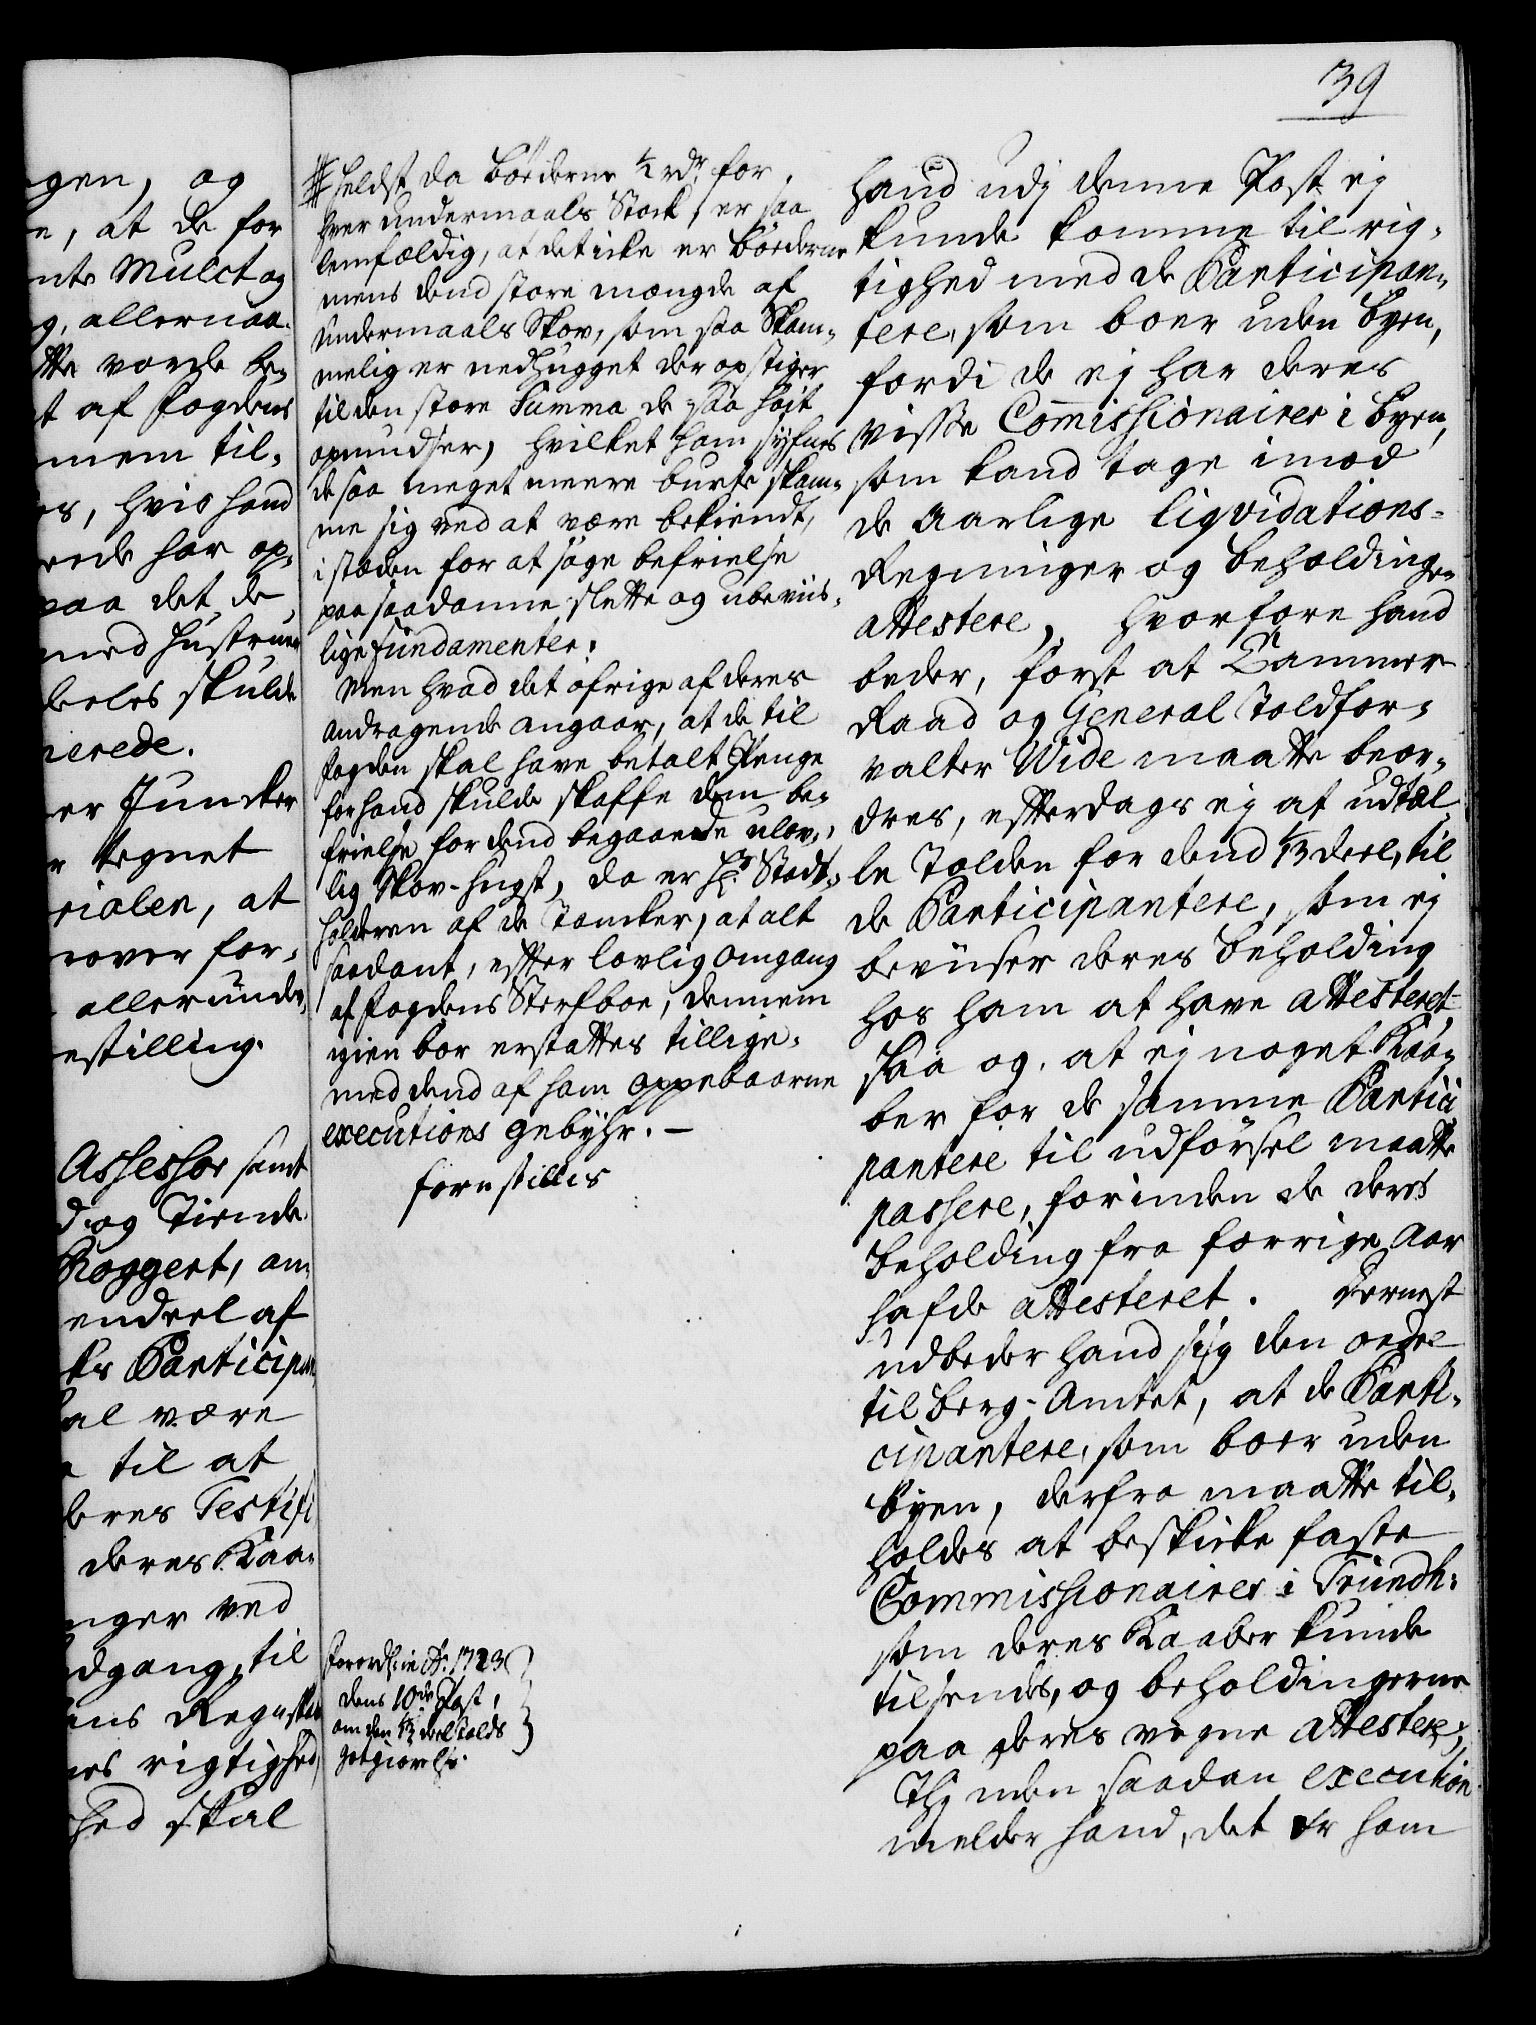 39
gen, og
e, at de for
nte Mulct og
g, allernaa-
tte vorde be-
t af fogdens
mem til-
es, hvis hand
rede har op-
paa det, de
med Hustruen
deles skulde
nerede.
er Juncker
r tegnet
rialen, at
rover for-
allerunder
estilling.
Assessor samt
d og Tiende-
Roggert, an-
endeel af
ks Participan
al være
til at
deres Testifi
deres Kaa-
nger ved
dgang, til
ans Regnskab
nes rigtighed,
hed skal
# Heldst da bøderne ½ rdr for
hver undermaals Stock, er saa
lemfældig, at det icke er bøderne
mens dend store mængde af
undermaals Skov, som saa Skam-
melig er nedhugget der opstiger
til den store Summa de saa høit
opmudser, hvilket ham syfnes
de saa meget meere burte skam-
me sig ved at være bekiendt,
i stæden for at søge befrielse
paa saadanne slette og ubeviis-
lige fundamenter.
Men hvad det øfrige af deres
andragende angaar, at de til
fogden skal have betalt Penge
for hand skulde skaffe dem be-
frielse for dend begaaede ulov-
lig Skov-hugst, da er Hr. Stadt-
holderen af de Tancker, at alt
saadant, efter lovlig omgang
af fogdens Sterfboe, dennem
igien bør erstattes tillige-
med dend af ham oppebaarne
executions gebyhr. -
forestilles
Forordn: in Ao. 1723
dens 10de Post,
om den 1/3 deel Tolds
godgiørelse.
hand udj denne Post ej
kunde komme til rig-
tighed med de Participan-
tere, som boer uden byen,
fordi de ej har deres
visse Commissionairer i byen,
som kand tage imod
de Aarlige liqvidations-
Regninger og beholdinger
attestere, hvorfore hand
beder, først at Cammer
Raad og General Toldfor-
valter Wide maatte beor-
dres, efterdags ej at udtæl-
le Tolden for dend 1/3 deel, til
de Participantere, som ej
beviiser deres beholding
hos ham at have attesteret
Saa og, at ej noget Kaa-
ber for de samme Partici
pantere til udførsel maatte
passere, forinden de deres
beholding fra forrige Aar
hafde attesteret. Dernest
udbeder hand sig den ordre
til Berg-Amtet, at de Parti-
cipantere, som boer uden
byen, derfra maatte til-
holdes at beskicke faste
Commissionairer i Trundh:
som deres Kaaber kunde
tilsendes, og beholdingerne
paa deres vegne attestere;
Thj uden saadan execution
melder hand, det er ham